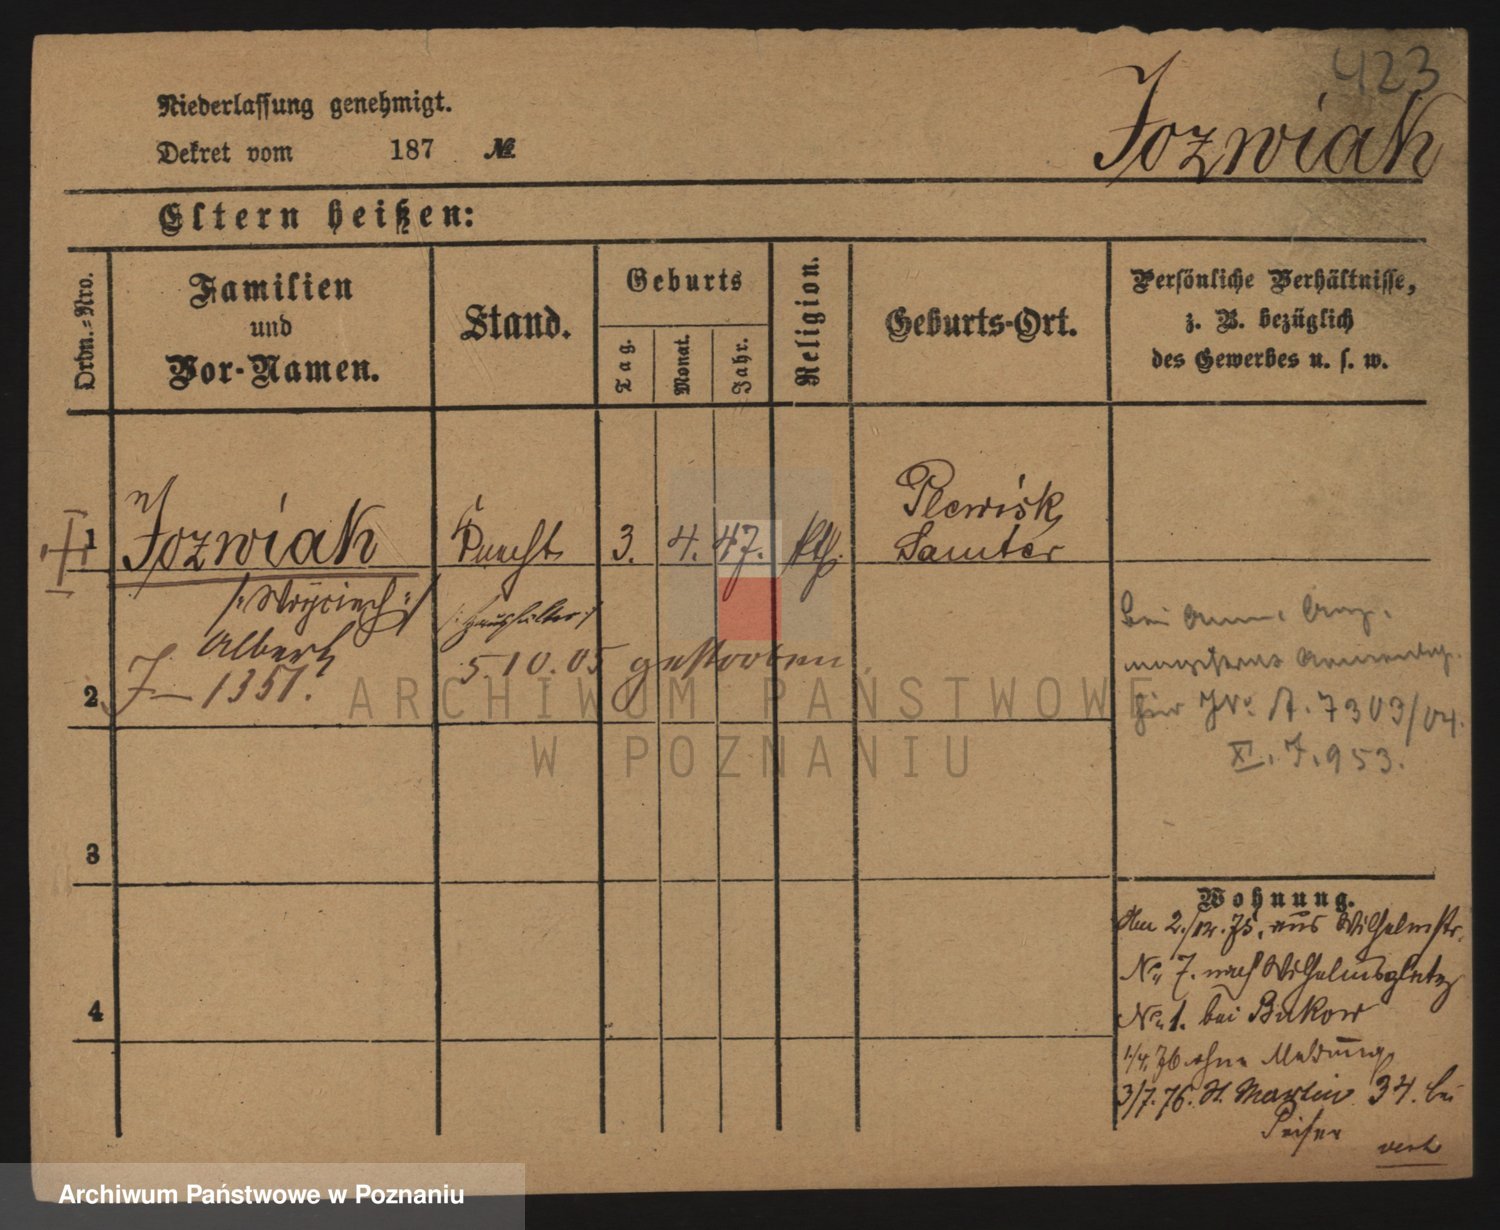 423
Jozwiak
Niederlassung genehmigt.
Dekret vom 187 №
Eltern heißen:
Ordn.=Nro.
Familien
und
Vor-Namen.
Stand.
Geburts
Tag.
Monat.
Jahr.
Religion.
Geburts-Ort.
Persönliche Verhältnisse,
z. B. bezüglich
des Gewerbes u. s. w.
1
Jozwiak
Knecht
3. 4. 47. kth.
Plewisk
Samter
/: Woyciech :/
Albert
/: Haushälter :/
J – 1351.
5.10.05 gestorben
2
bei
hier A. 7303/04.
XI. J. 953.
3
4
Wohnung.
Am 2./12.75. aus Wilhelmstr.
No 7. nach Wilhelmsplatz
No 1. bei Bukow
1/4.76 ohne Meldung
3/7.76. St. Martin 34. bei
Peiser
vert
ARCHIWUM PAŃSTWOWE
W POZNANIU
Archiwum Państwowe w Poznaniu